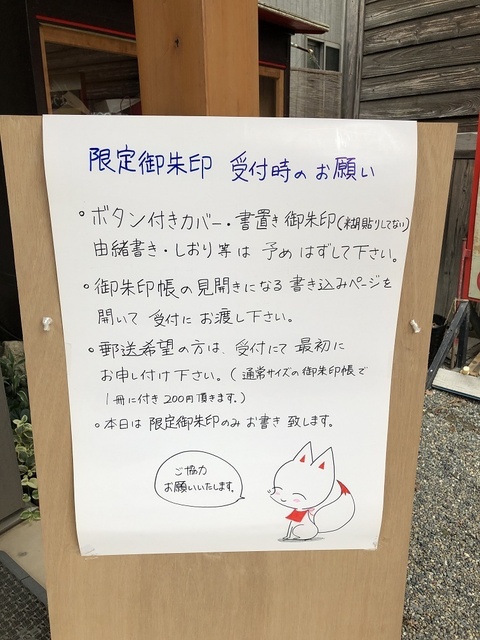 限定御朱印 受付時のお願い
。ボタン付きカバー・書置き御朱印(糊貼りしてない)
由緒書き・しおり等は 予め はずして下さい。
。御朱印帳の見開きになる書き込みページを
開いて 受付に お渡し下さい。
。郵送希望の方は、受付にて 最初に
お申し付け下さい。(通常サイズの御朱印帳で
1冊に付き200円頂きます。)
。本日は 限定御朱印のみ お書き 致します。
ご協力
お願いいたします。